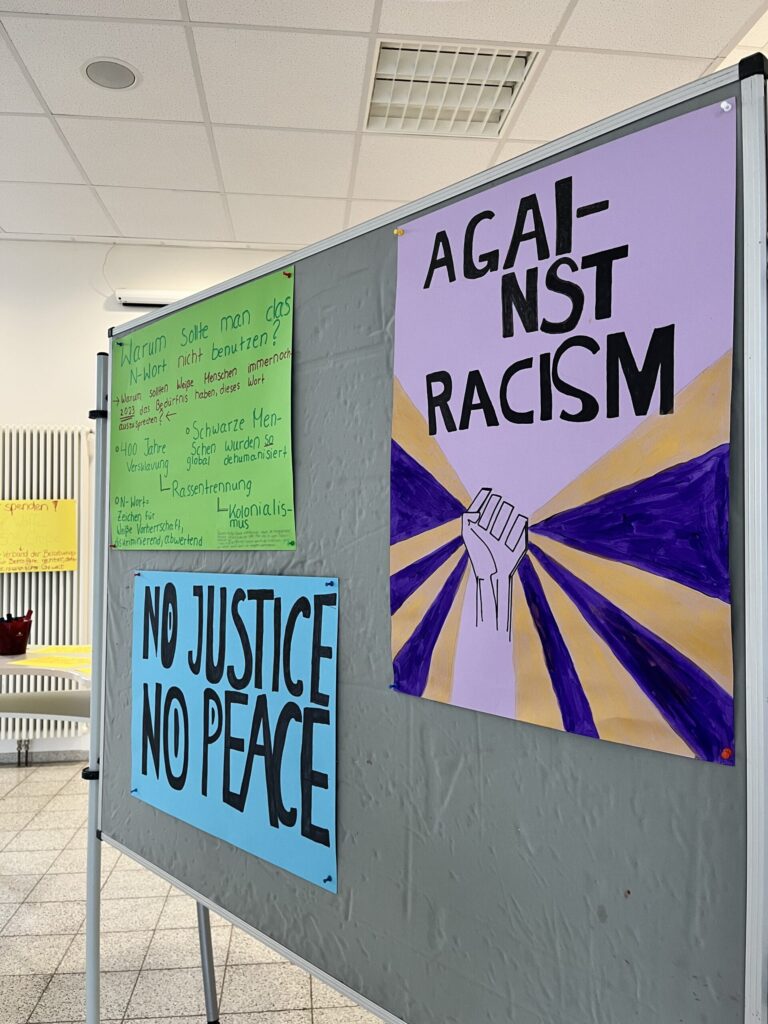 Warum sollte man das
N-Wort nicht benutzen?
→ Warum sollten Weiße Menschen immernoch
2023 das Bedürfnis haben, dieses Wort
auszusprechen? ←
• 400 Jahre
Versklavung
• Schwarze Men-
schen wurden so
global dehumanisiert
Rassentrennung
Kolonialis-
mus
• N-Wort=
Zeichen für
Weiße Vorherrschaft,
diskriminierend, abwertend
NO JUSTICE
NO PEACE
AGAI-
NST
RACISM
spenden?
Verband der